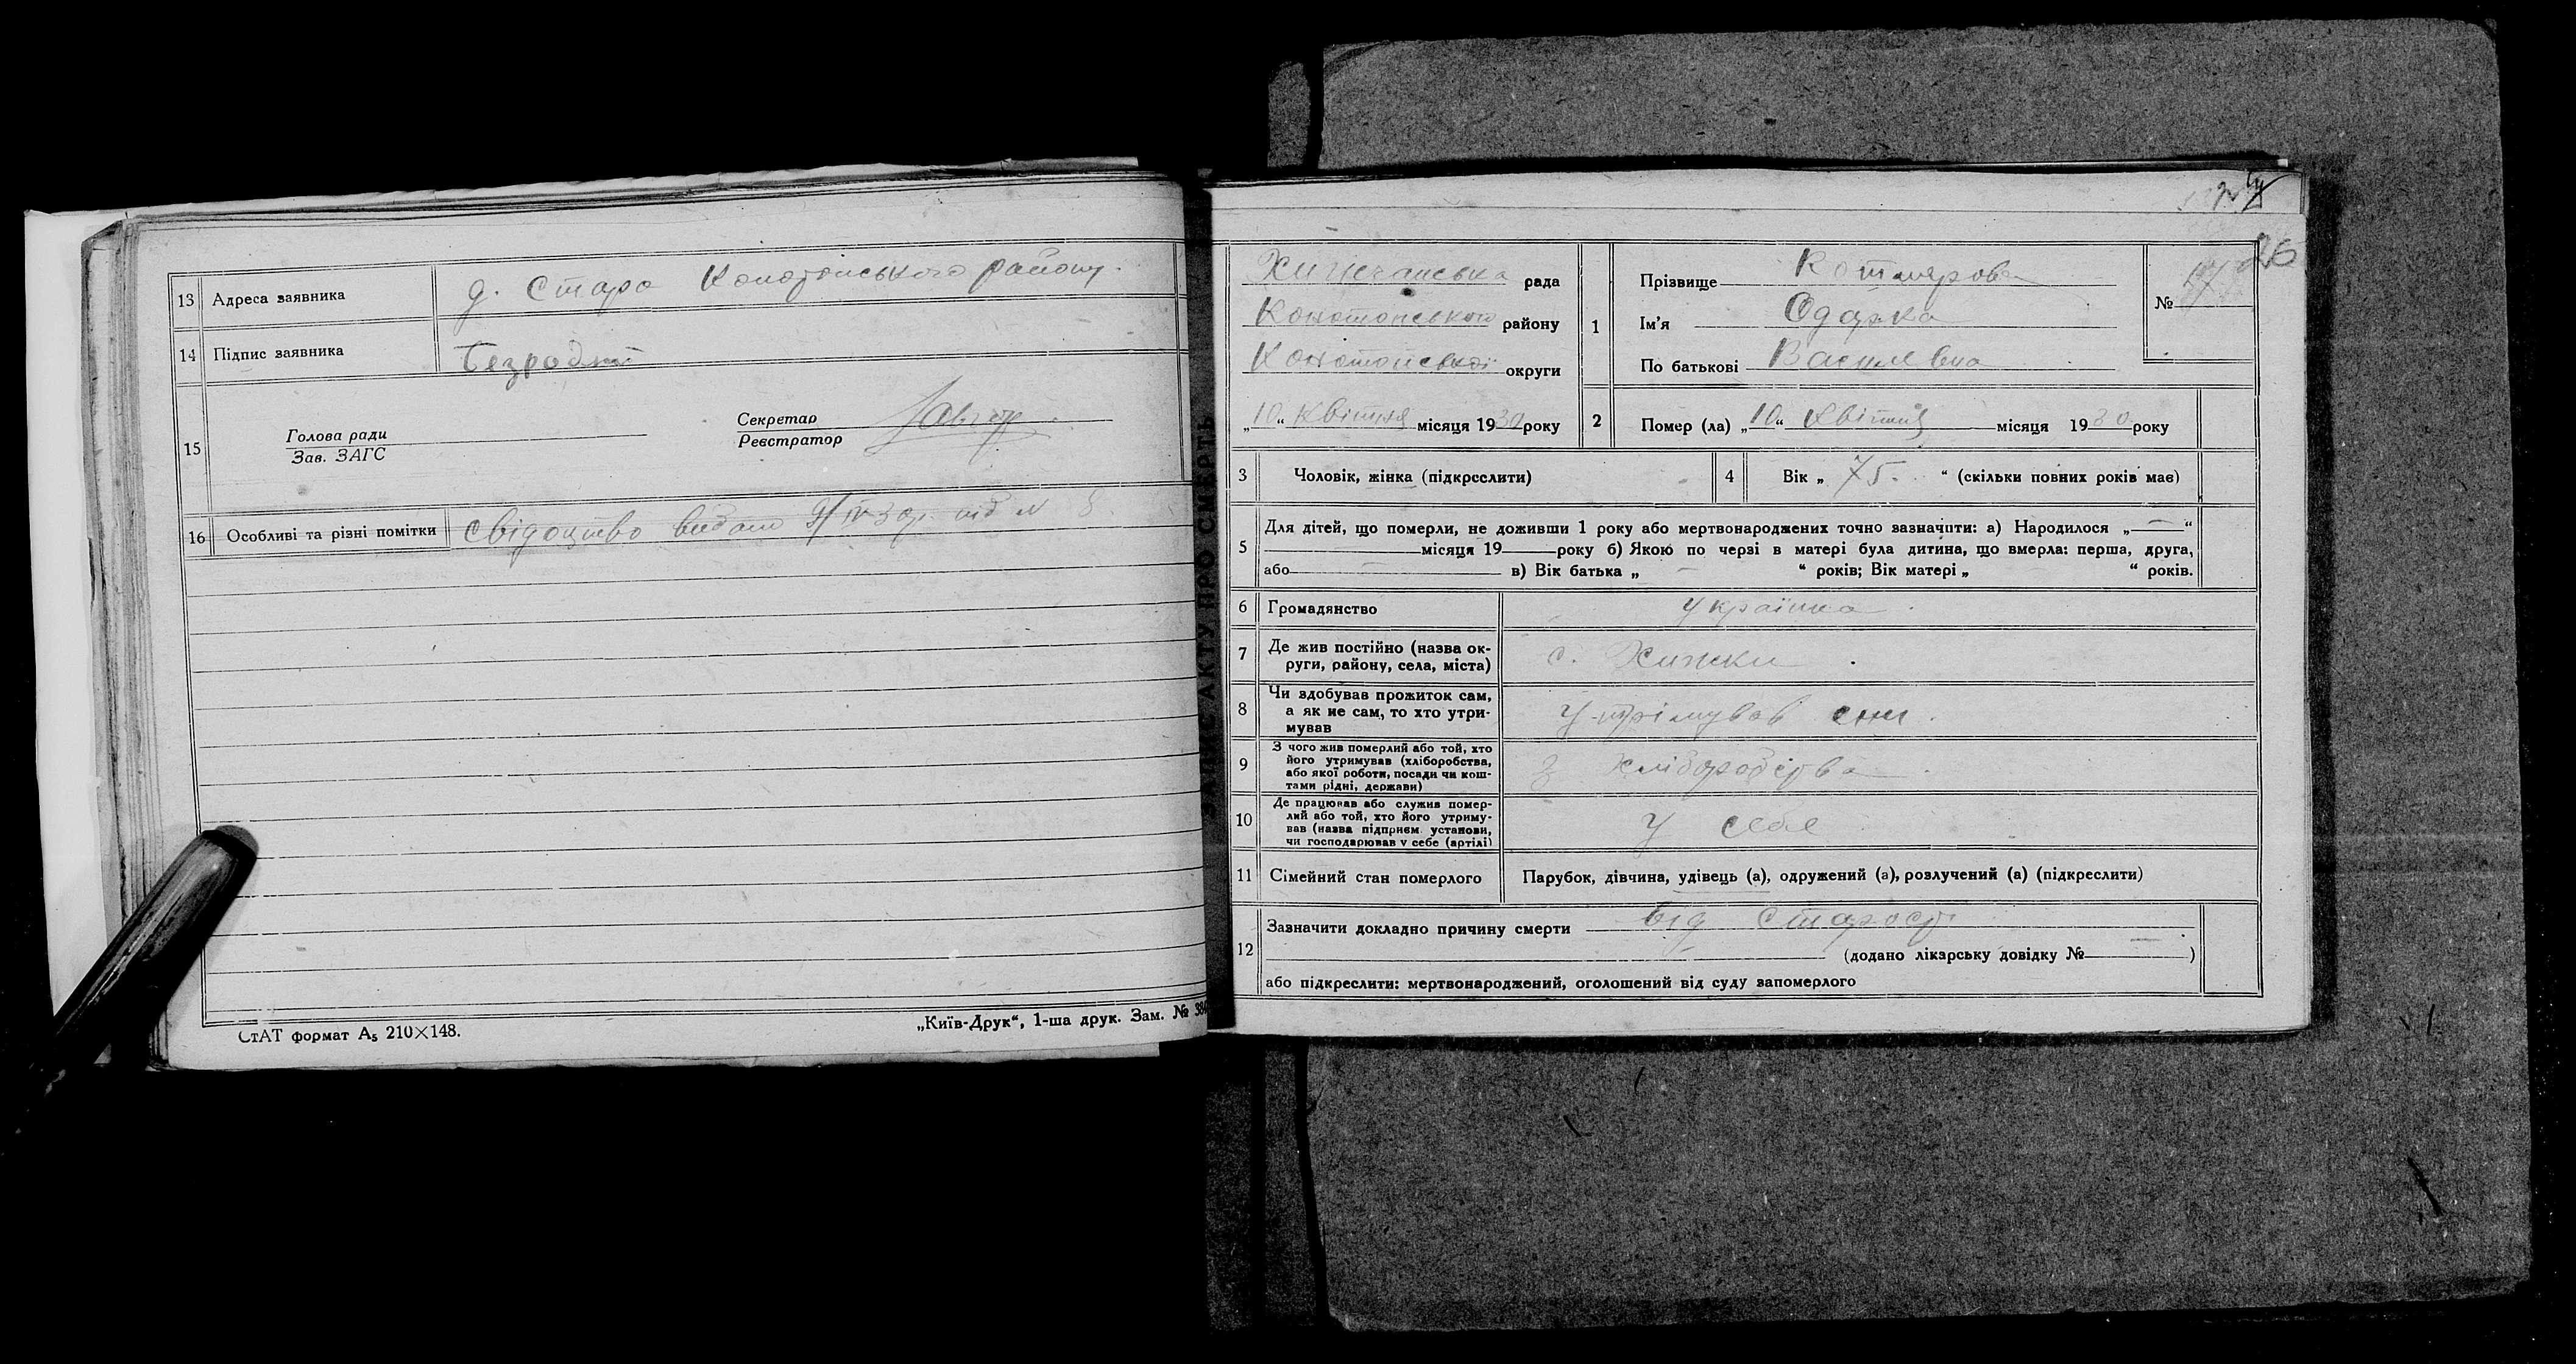 13 Адреса заявника д. Стара Конотопського району.
14 Підпис заявника Безродній
15 Голова ради
Зав. ЗАГС
Секретар
Реєстратор
16 Особливі та різні помітки Свідоцтво видано 9/IV 30р. під N 8
СтАТ формат А₅ 210×148.
„Київ-Друк“, 1-ша друк. Зам. №
26
Хижчанська рада
Конотопського району
Конотопської округи
„10“ Квітня місяця 1930 року
1 Прізвище
Ім’я Одарка
По батькові Василевна
№
2 Помер (ла) „10“ Квітня місяця 1930 року
3 Чоловік, жінка (підкреслити)
4 Вік „ 75. “ (скільки повних років має)
5 Для дітей, що померли, не доживши 1 року або мертвонароджених точно зазначити: а) Народилося „—“
місяця 19 року б) Якою по черзі в матері була дитина, що вмерла: перша, друга,
або в) Вік батька „ - “ років; Вік матері „ “ років.
6 Громадянство Українка
7 Де жив постійно (назва ок-
руги, району, села, міста) с. Хижки
8 Чи здобував прожиток сам,
а як не сам, то хто утри-
мував Утрімував син.
9 З чого жив померлий або той, хто
його утримував (хліборобства,
або якої роботи, посади чи кош-
тами рідні, держави) З хліборобства
10 Де працював або служив помер-
лий або той, хто його утриму-
вав (назва підприєм. установи,
чи господарював у себе (артілі) У себе
11 Сімейний стан померлого Парубок, дівчина, удівець (а), одружений (а), розлучений (а) (підкреслити)
12 Зазначити докладно причину смерти від старості
(додано лікарську довідку № — )
або підкреслити: мертвонароджений, оголошений від суду запомерлого